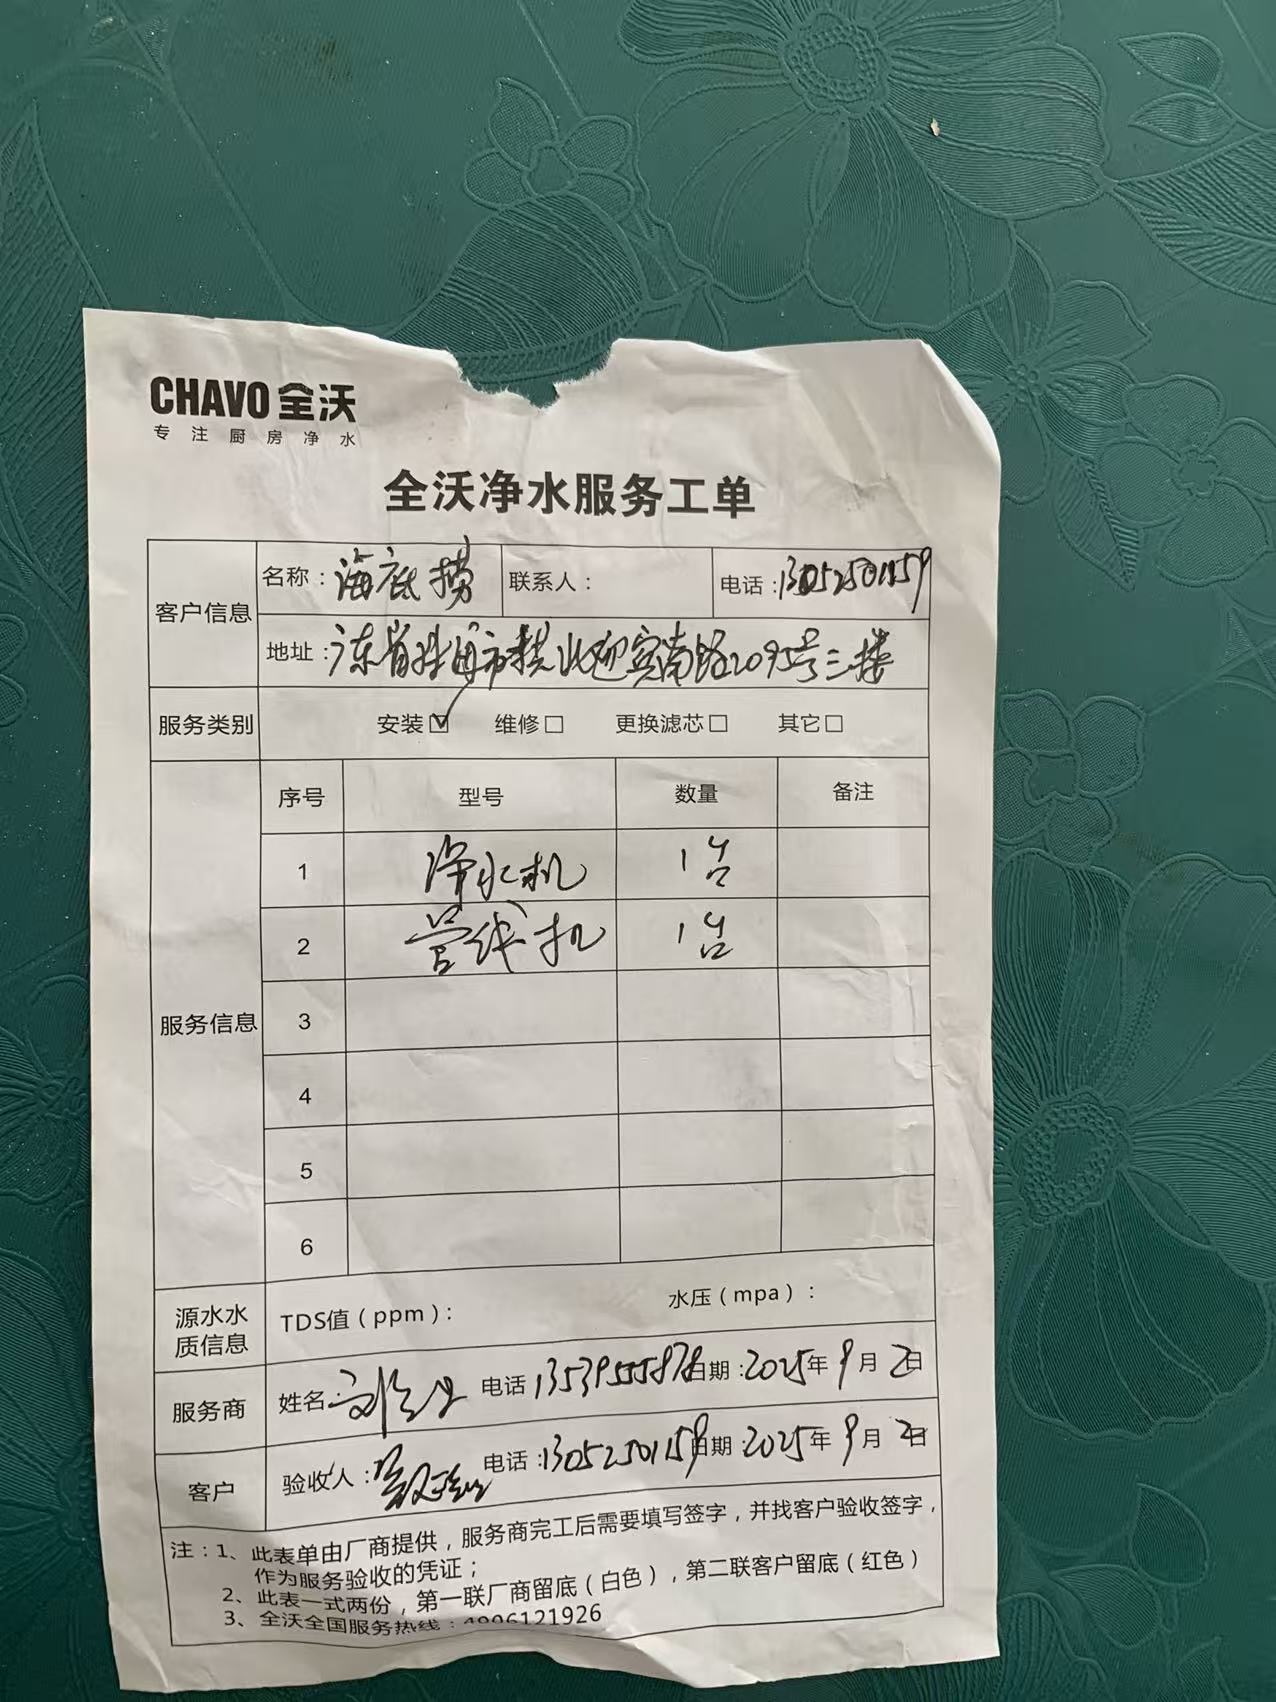 CHAVO 全沃
专注厨房净水
全沃净水服务工单
客户信息 名称：海底捞 联系人： 电话：13052501159
地址：广东省珠海市拱北迎宾南路2095号三楼
服务类别 安装☑ 维修□ 更换滤芯□ 其它□
服务信息 序号 型号 数量 备注
1 净水机 1台
2 管线机 1台
3
4
5
6
源水水质信息 TDS值（ppm）： 水压（mpa）：
服务商 姓名： 电话 日期：2025年9月2日
客户 验收人： 电话：13052501159 日期：2025年9月2日
注：1、此表单由厂商提供，服务商完工后需要填写签字，并找客户验收签字，
作为服务验收的凭证；
2、此表一式两份，第一联厂商留底（白色），第二联客户留底（红色）
3、全沃全国服务热线：4006121926